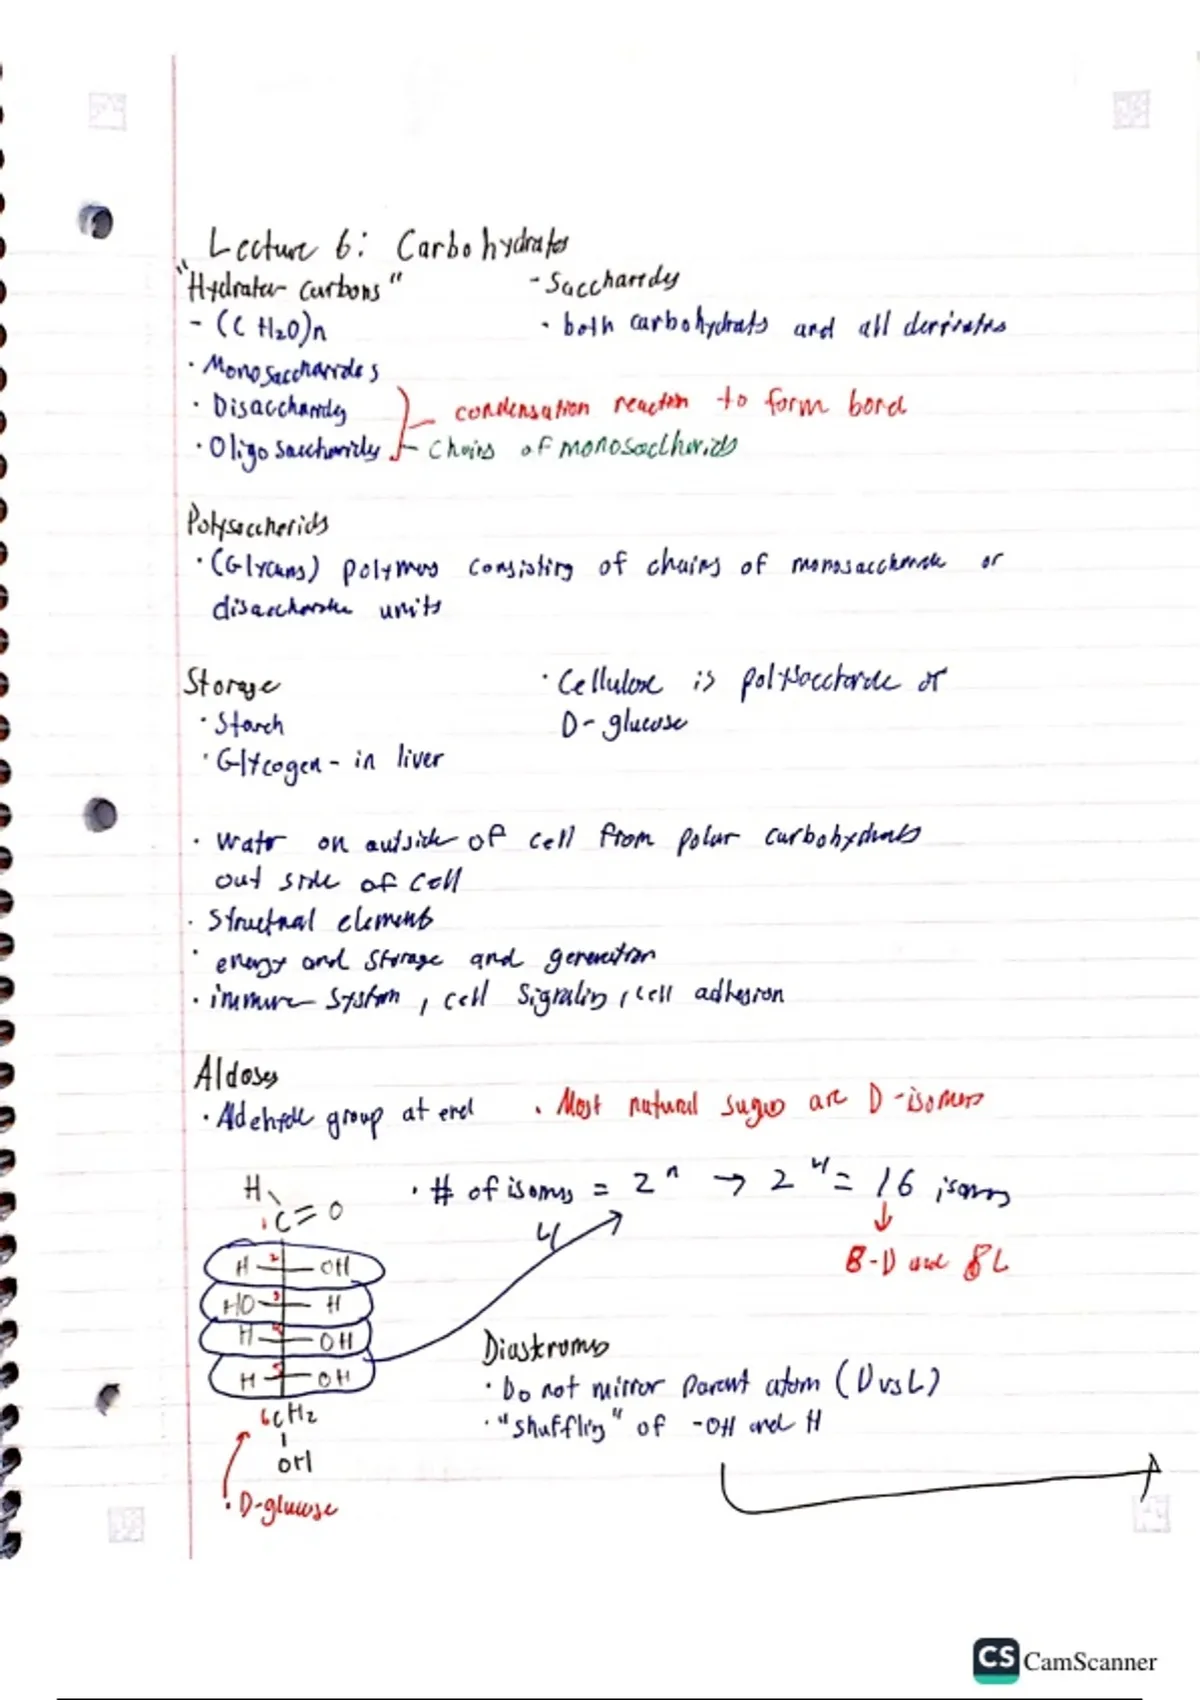 Lecture 6: Carbohydrates
"Hydrater carbons"
- (C H₂O)n
· Monosaccharides
· Disaccharides
· Oligosaccharides
- Saccharides
· both carbohydrats and all derivates
condensation reaction to form bond
- Chains of monosaccharids
Polysaccherids
· (Glycans) polymers consisting of chains of monosaccharide or
disaccharide units
Storage
· Starch
· Glycogen - in liver
· Cellulose is polysaccharide of
D-glucose
· water on outside of cell from polar carbohydrates
out side of cell
· structual elements
· energy and storage and generation
· immune system, cell signaling, cell adhesion
Aldoses
· Aldehyde group at end
· Most natural sugars are D-isomers
· # of isomers = 2ⁿ → 2⁴ = 16 isomers
4
8-D and 8L
H
1 C = O
H 2 OH
HO 3 H
H 4 OH
H 5 OH
6 CH₂
OH
· D-glucose
Diastromers
· Do not mirror parent atom (D vs L)
· "shuffling" of -OH and H
CS CamScanner